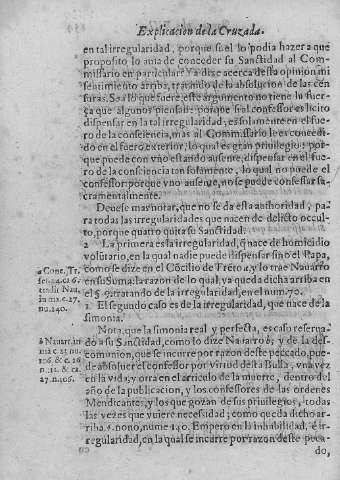 Explicacion de la Cruzada.
en tal irregularidad, porque si el lo podia hazer a que
proposito lo auia de conceder su Sanctidad al Com-
missario en particular? Ya dixe acerca desta opinion mi
sentimiento arriba, tratando de la absolucion de las cen
suras. Sea lo que fuere, este argumento no tiene la fuer-
ça que algunos piensan: porque si el confessor es licito
dispensar en la tal irregularidad, es solamente en el fue-
ro de la consciencia, mas al Commissario le es concedi-
do en el fuero exterior, lo qual es gran priuilegio: por-
que puede con vno estando ausente, dispensar en el fue-
ro de la consciencia tan solamente, lo qual no puede el
confessor porque vno ausente, no se puede confessar sa-
cramentalmente.
Deuese mas notar, que no se da esta authoridad, pa-
ra todas las irregularidades que nacen de delicto occul-
to, porque quatro quita su Sanctidad.
2 La primera es la irregularidad, q̃ nace de homicidio
volũtario, en la qual nadie puede dispensar sino el Papa,
como se dize en el Cõcilio de Trẽto a, y lo trae Nauarro
en su Suma: la razon de lo qual, ya queda dicha arriba en
el §. 9. tratando de la irregularidad, en el num. 70.
3 El segundo caso es de la irregularidad, que nace de la
simonia.
Nota, que la simonia real y perfecta, es caso reserua-
do a su Sanctidad, como lo dize Nauarro b, y de la des-
comunion, que se incurre por razon deste peccado, pue-
de absoluer el confessor por virtud desta Bulla, vna vez
en la vida, y otra en el articulo de la muerte, dentro del
año de la publicacion, y los confessores de las ordenes
Mendicantes, y los que gozan de sus priuilegios, todas
las vezes que viuiere necessidad; como queda dicho ar-
riba, §. nono, nume 140. Empero en la inhabilidad, è ir-
regularidad, en la qual se incurre por razon deste peca-
do,
a Conc. Tr.
ses. 14. ca 6.
nu. 140.
27. n. 106.